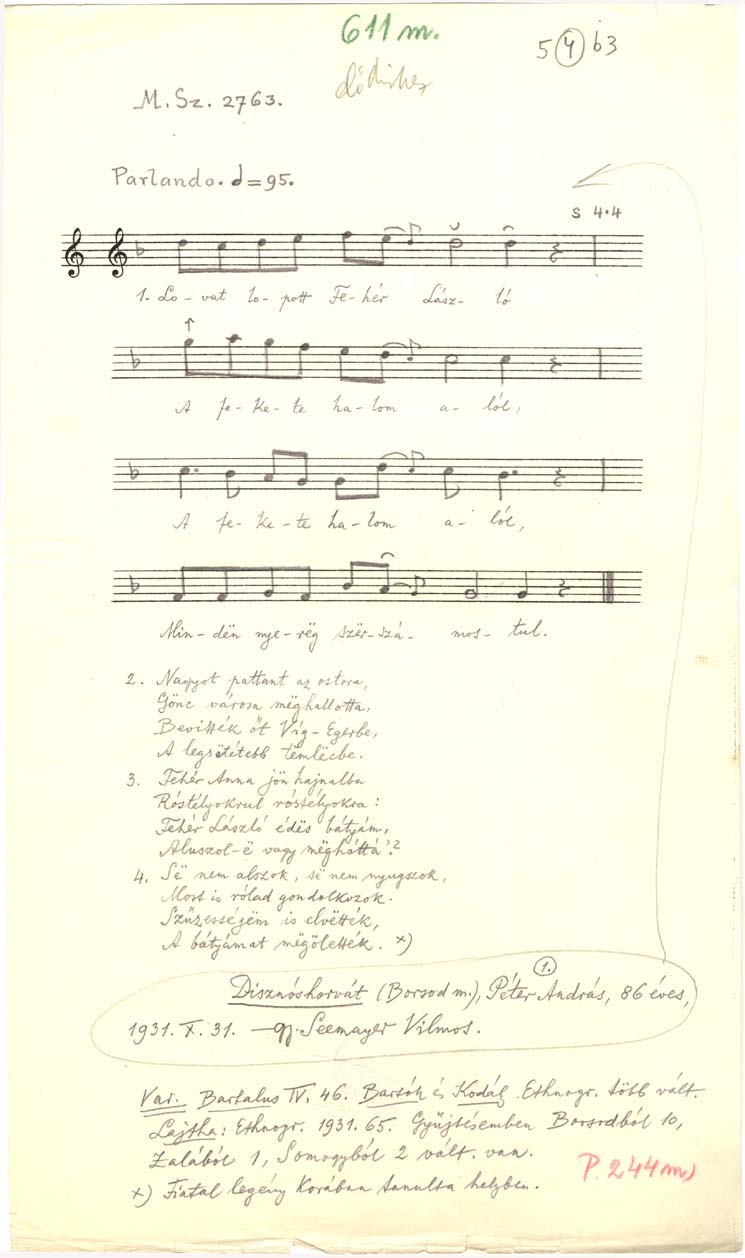 611 m.
5 4 b3
M. Sz. 2763.
Parlando. = 95.
s 4.4
1. Lo- vat lo- pott Fe- hér Lász- ló
A fe- ke- te ha- lom a- lól,
A fe- ke- te ha- lom a- lól,
Min- dën nye- rëg szër- szá- mos- tul.
2. Nagyot pattant az ostora,
Gönc városa mëghallotta,
Bevitték őt Víg-Egerbe,
A legsötétebb tëmlëcbe.
3. Fehér Anna jön hajnalba
Róstélyokrul róstélyokra:
Fehér László édës bátyám,
Aluszol-ë vagy mëghóttá'?
4. Së nem alszok, së nem nyugszok,
Most is rólad gondolkozok.
Szűzességëm is elvëtték,
A bátyámat mëgölették. x)
1.
Disznóshorvát (Borsod m.), Péter András, 86 éves,
1931. X. 31. — gy. Seemayer Vilmos.
Var. Bartalus IV. 46. Bartók és Kodály Ethnogr. több vált.
Lajtha: Ethnogr. 1931. 65. Gyűjtésemben Borsodból 10,
Zalából 1, Somogyból 2 vált. van.
P. 244 m)
x) Fiatal legény korában tanulta helyben.